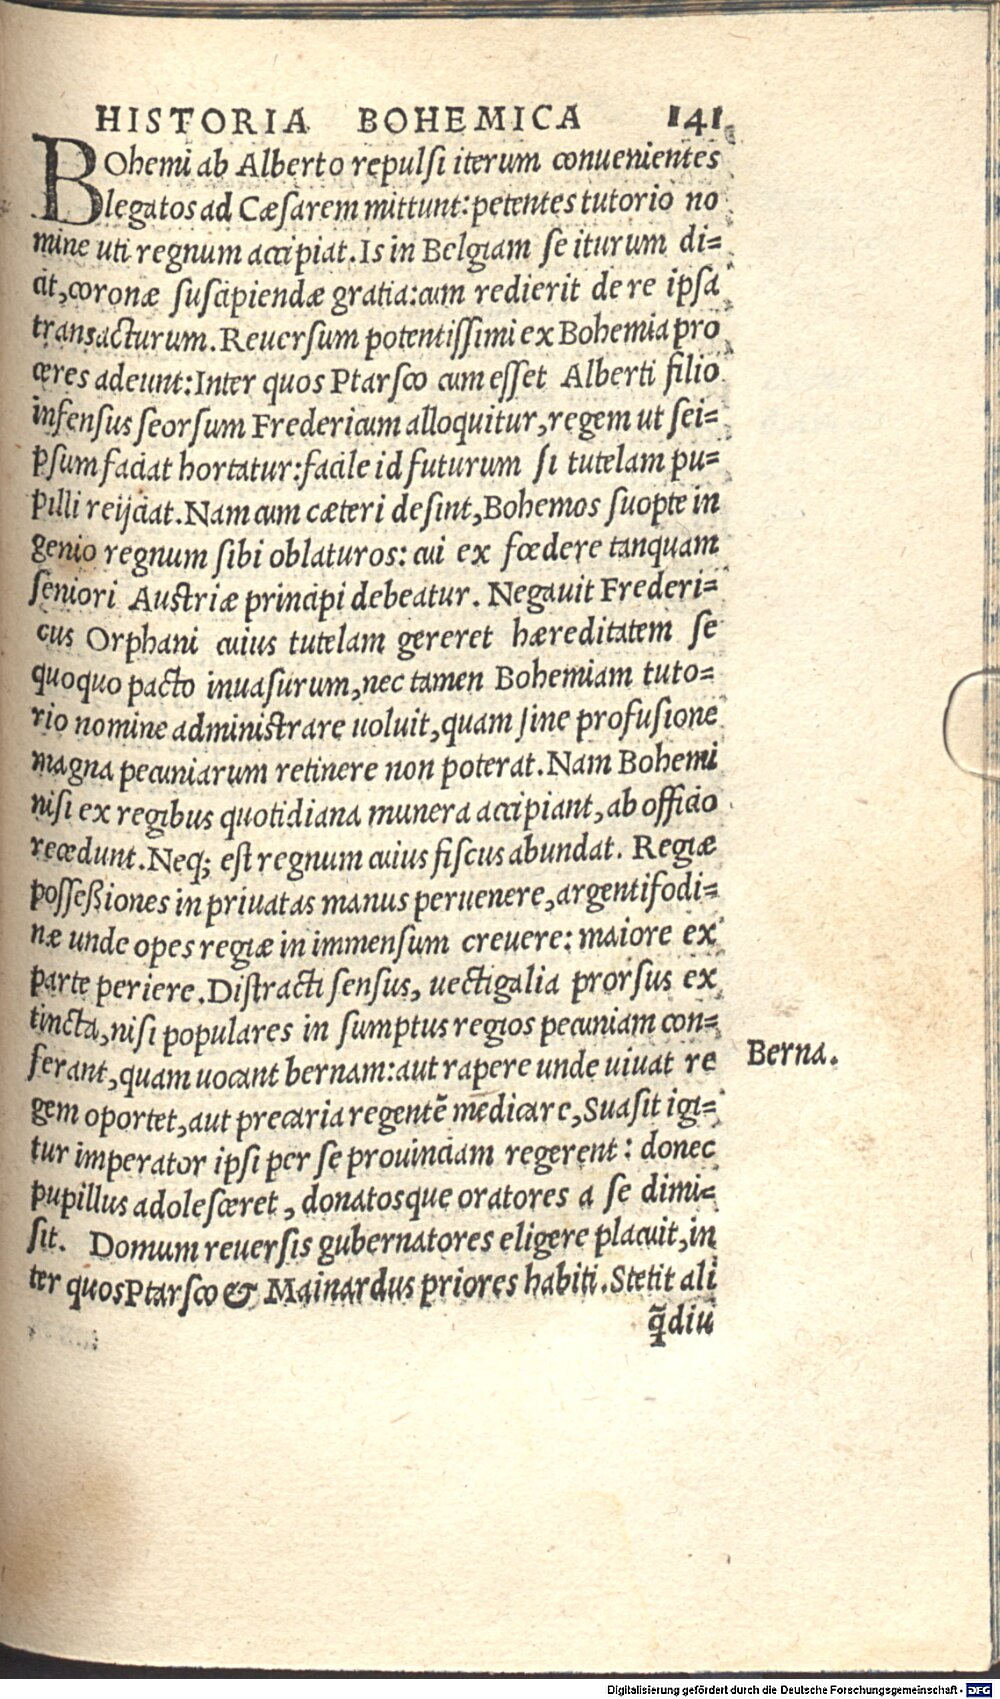 HISTORIA BOHEMICA 141
BOhemi ab Alberto repulsi iterum conuenientes
legatos ad Cæsarem mittunt: petentes tutorio no
mine uti regnum accipiat. Is in Belgiam se iturum di=
cit, coronæ suscipiendæ gratia: cum redierit de re ipsa
transacturum. Reuersum potentissimi ex Bohemia pro
ceres adeunt: Inter quos Ptarsco cum esset Alberti filio
infensus seorsum Fredericum alloquitur, regem ut sei=
psum faciat hortatur: facile id futurum si tutelam pu=
pilli reijciat. Nam cum cæteri desint, Bohemos suopte in
genio regnum sibi oblaturos: cui ex fœdere tanquam
seniori Austriæ principi debeatur. Negauit Frederi=
cus Orphani cuius tutelam gereret hæreditatem se
quoquo pacto inuasurum, nec tamen Bohemiam tuto=
rio nomine administrare uoluit, quam sine profusione
magna pecuniarum retinere non poterat. Nam Bohemi
nisi ex regibus quotidiana munera accipiant, ab officio
recedunt. Neq; est regnum cuius fiscus abundat. Regiæ
possessiones in priuatas manus peruenere, argentifodi=
næ unde opes regiæ in immensum creuere: maiore ex
parte periere. Distracti sensus, uectigalia prorsus ex
tincta, nisi populares in sumptus regios pecuniam con=
ferant, quam uocant bernam: aut rapere unde uiuat re
gem oportet, aut precaria regentē medicare, Suasit igi=
tur imperator ipsi per se prouinciam regerent: donec
pupillus adolesceret, donatosque oratores a se dimi=
sit. Domum reuersis gubernatores eligere placuit, in
ter quos Ptarsco & Mainardus priores habiti. Stetit ali
q̃diu
Berna.
Digitalisierung gefördert durch die Deutsche Forschungsgemeinschaft - DFG